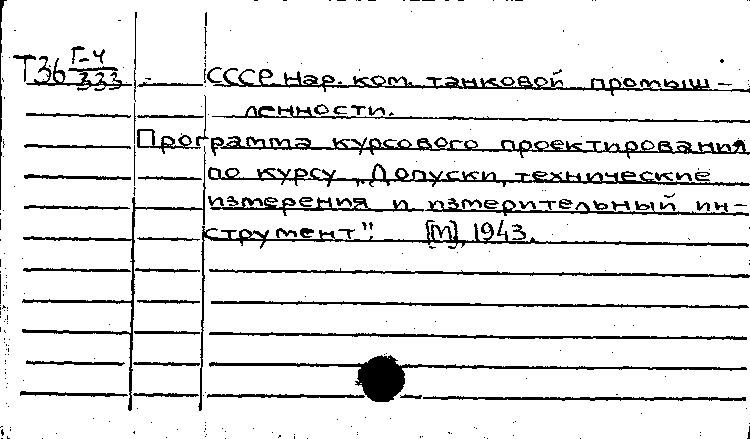 Т36 Г-4/333 СССР. Нар. ком. танковой промыш-
ленности.
Программа курсового проектирования
по курсу „Допуски, технические
измерения и измерительный ин-
струмент". [М], 1943.